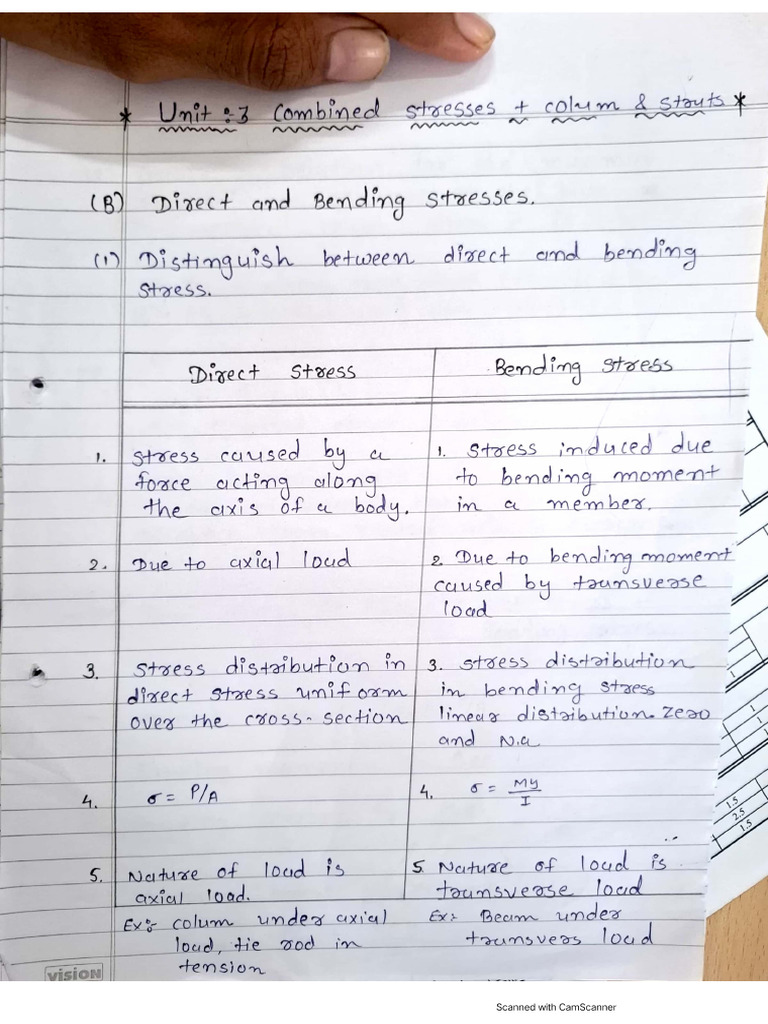 * Unit :- 3 Combined stresses + colum & struts *
(B) Direct and Bending stresses.
(1) Distinguish between direct and bending
stress.
Direct stress
Bending stress
1. stress caused by a
force acting along
the axis of a body.
1. stress induced due
to bending moment
in a member.
2. Due to axial load
2. Due to bending moment
caused by transverse
load
3. stress distribution in
direct stress uniform
over the cross-section
3. stress distribution
in bending stress
linear distribution. zero
and N.a
4. σ = P/A
4. σ = My/I
5. Nature of load is
axial load.
5. Nature of load is
transverse load
Ex:- colum under axial
load, tie rod in
tension
Ex:- Beam under
transvers load
1
1
1
1.5
2.5
1.5
vision
Scanned with CamScanner